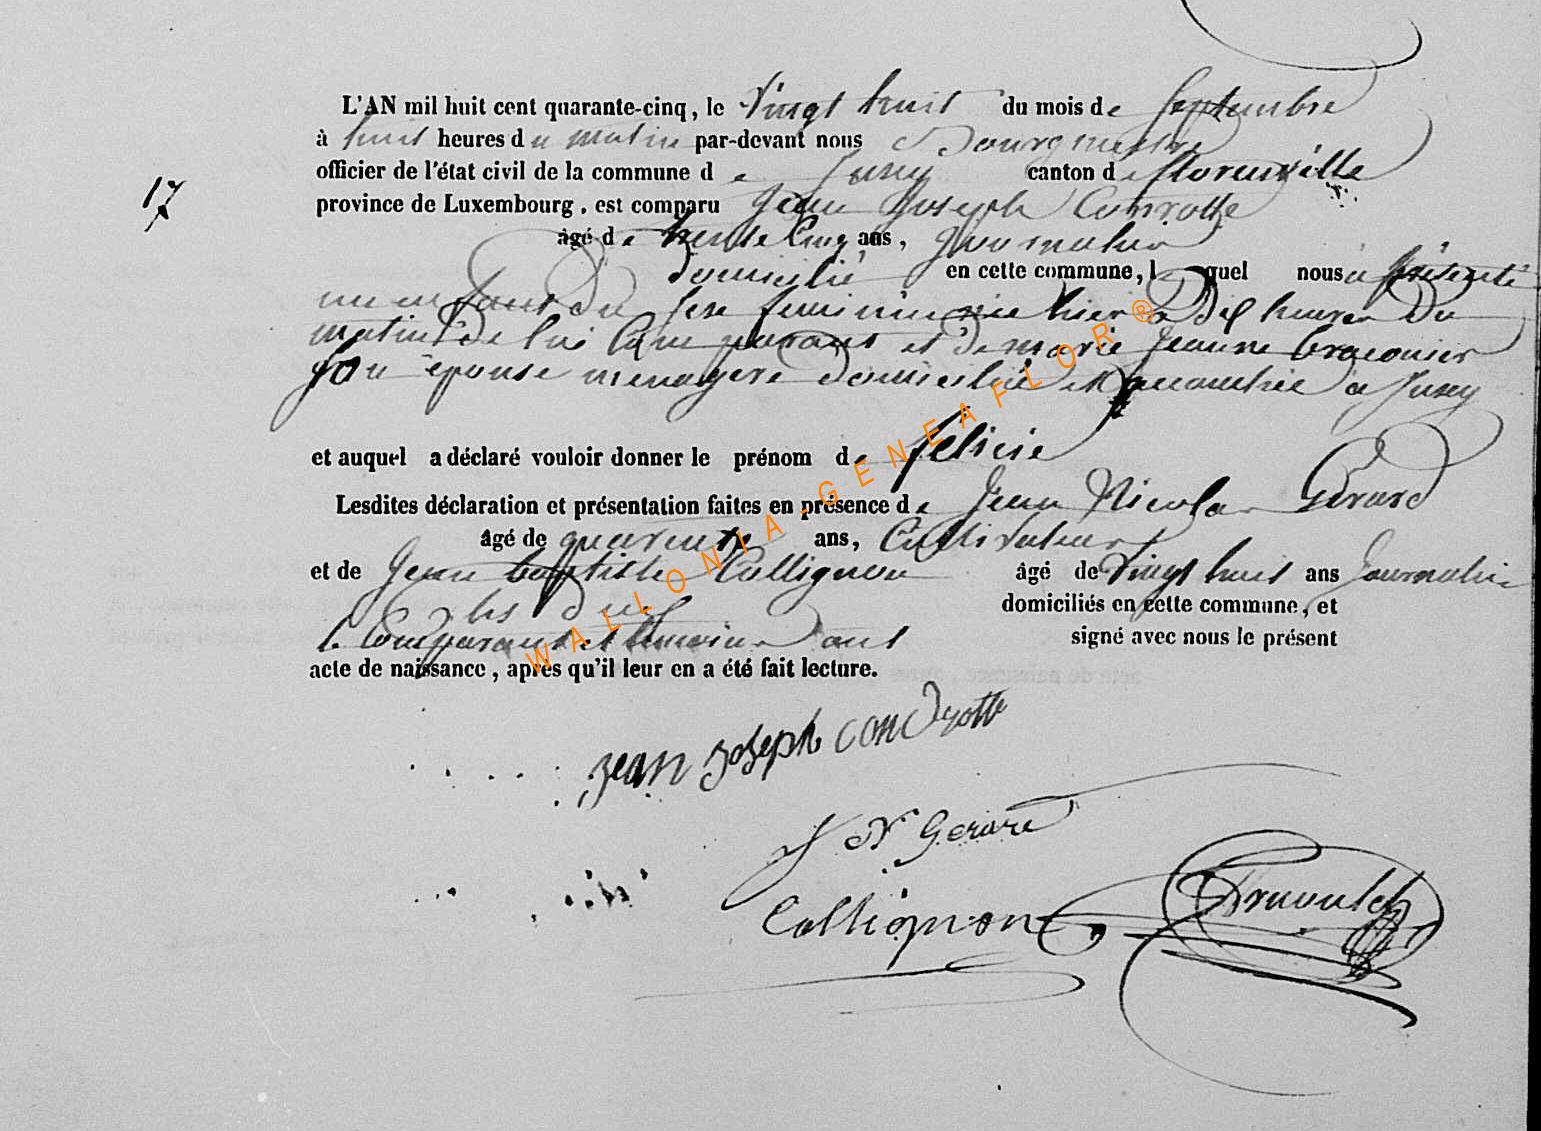 L'AN mil huit cent quarante-cinq, le Vingt huit du mois de Septembre
à huit heures du matin par-devant nous Bourgmestre
officier de l'état civil de la commune de Suxy canton de florenville
17
province de Luxembourg, est comparu Jean Joseph Conrotte
âgé de trente Cinq ans, Journalier
domicilié en cette commune, lequel nous a présenté
un enfant du sexe feminin née hier a Dix heures Du
matin de lui Comparant et de marie Jeanne braconier
son épouse menagere domiciliée et accouchée a Suxy
et auquel a déclaré vouloir donner le prénom de félicie
Lesdites déclaration et présentation faites en présence de Jean Nicolas Gérard
âgé de quarente ans, Cultivateur
et de Jean baptiste Collignon âgé de Vingt huit ans Journalier
domiciliés en cette commune, et
le Comparant et temoins ont signé avec nous le présent
acte de naissance, après qu'il leur en a été fait lecture.
WALLONIA-GENEAFLOR®
jean joseph condrotte
J N Gerard
Collignon